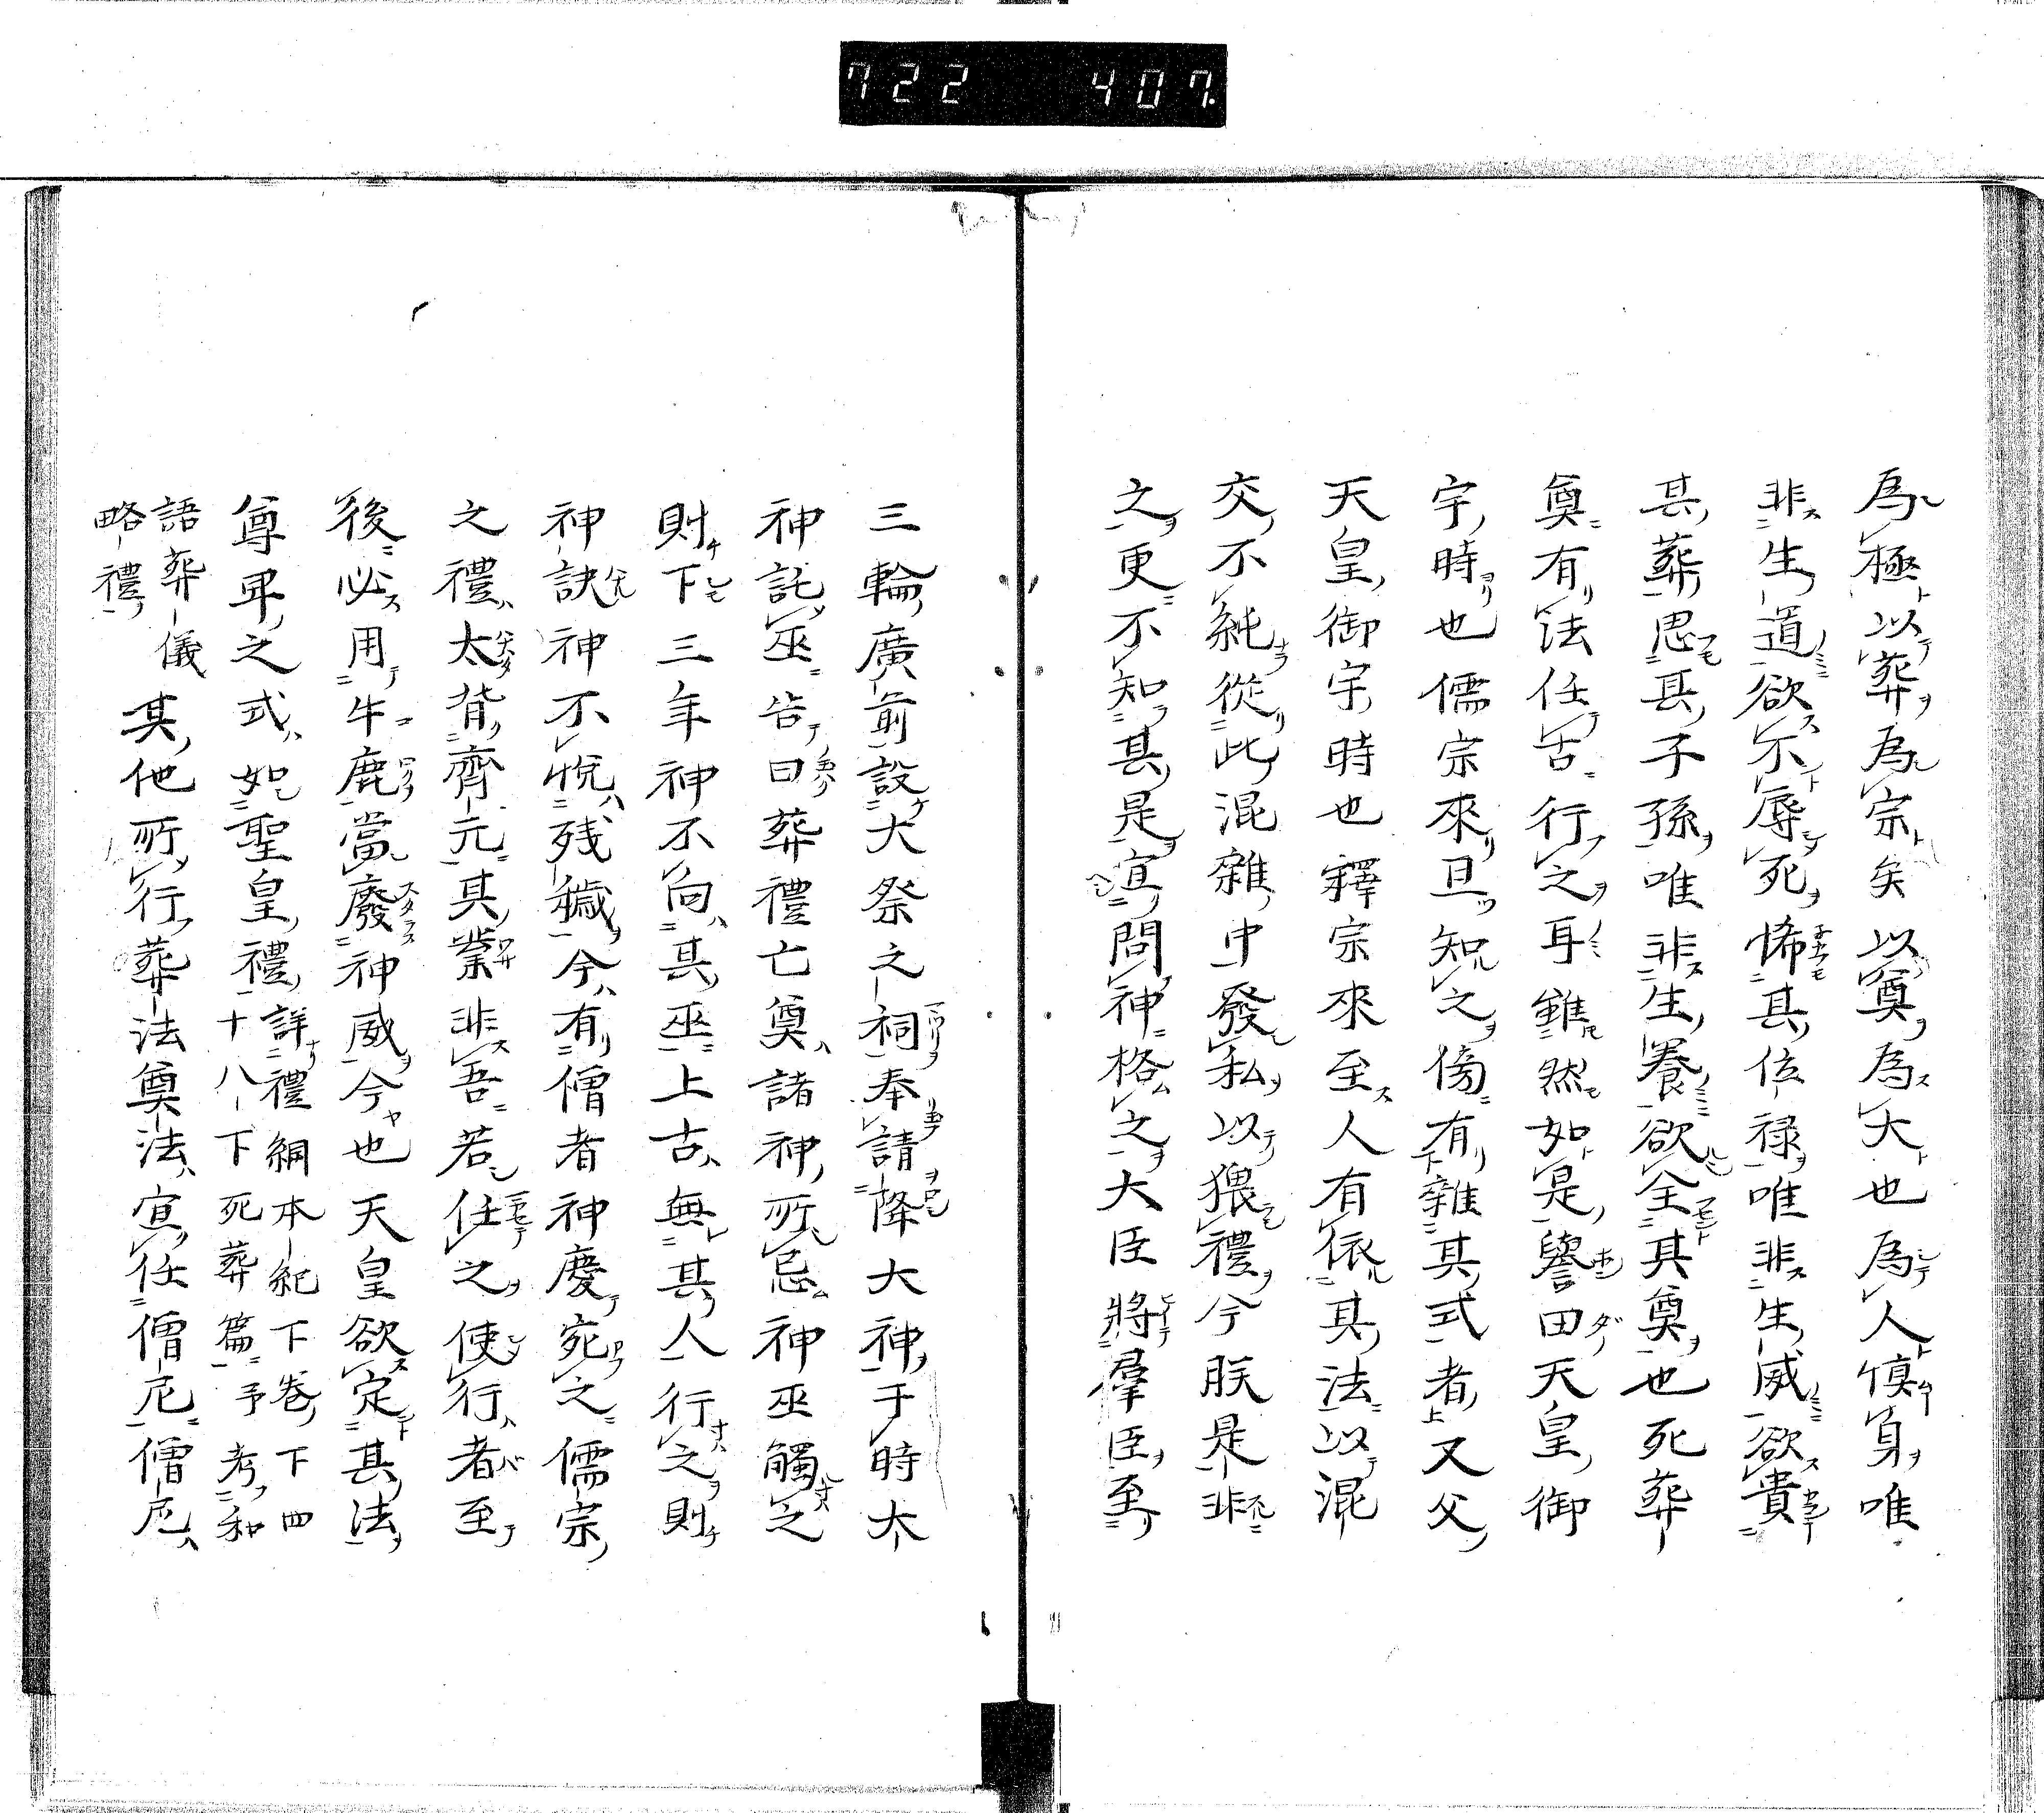 722 407.
為極以葬為宗矣以奠為大也為人慎身唯
非生道欲不辱死怖其位祿唯非生威欲貴
其葬思其子孫唯非生養欲全其奠也死葬
奠有法任古行之耳雖然如是譽田天皇御
宇時也儒宗來旦知之傍有雜其式者又父
天皇御宇時也釋宗來至人有依其法以混
交不純從此混雜中發私以猥禮今朕是非
之更不知其是宜問神格之大臣將羣臣至
三輪廣前設大祭之祠奉請降大神于時大
神託巫告曰葬禮亡奠諸神所忌神巫觸之
則下三年神不向其巫上古無其人行之則
神訣神不悅殘穢今有僧者神慶宛之儒宗
之禮太背齊元其業非吾若任之使行者至
後必用牛鹿當廢神威今也天皇欲定其法
尊卑之式如聖皇禮詳禮綱本紀下卷下四
十八下死葬篇予考和
語葬儀
略禮其他所行葬法奠法宜任僧尼僧尼